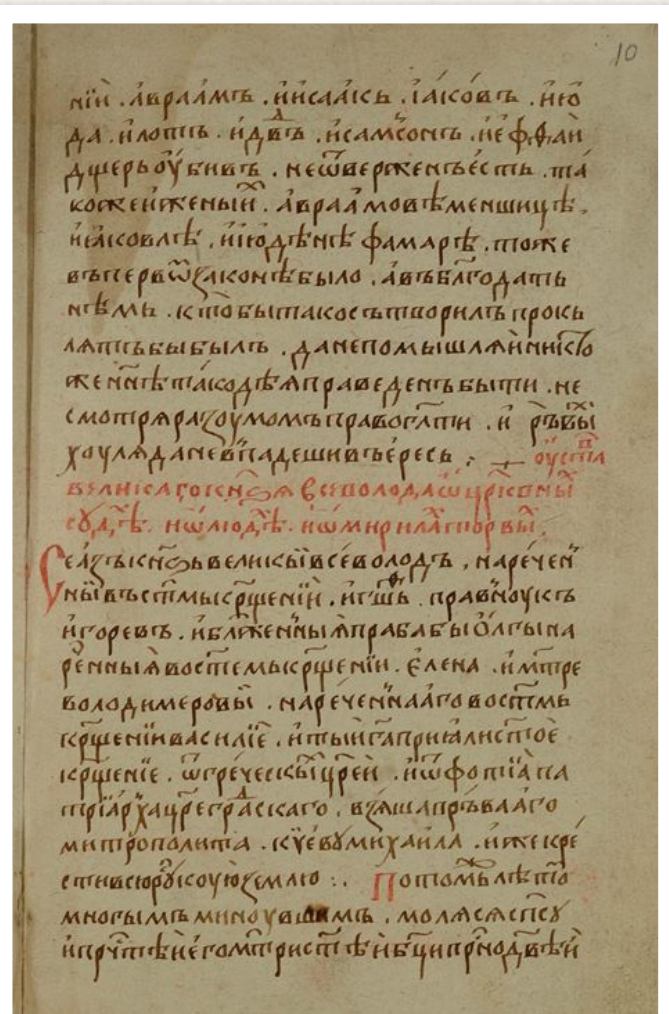 10
нїи . авраамъ . и исаакъ . їаковъ . и ю
да . и лотъ . и дв҃дъ . и самсонъ . и еффаи
дщерь оубивъ . не ѿверженъ есть . та
коже и женыи҆х . авраамовѣ меншицѣ .
и їаковлѣ . и їюдѣнѣ фамарѣ . тоже
въ первѡ законѣ было . а въ бл҃годать
нѣмь . кто бы тако сътворилъ прокъ
лятъ бы былъ . да не помышляи нис͡то
женнѣ тако дѣя праведенъ быти . не
смотря разоумомъ правосла̅ти . и рѣ
хоуля да не впадеши въ ересь ⁘ оуста̅в
великаго кн҃зя всеволода ѡ цр҃ковны
судѣ҆х . и ѡ людѣ҆х . и ѡ мѣрила торговы .
Се азъ кн҃зь великыи всеволодъ , нарече
ныи въ ст҃мь кр҃щенїи . правноукъ
игоревъ . и бл҃женныя прабабы олгы на
ренныя во ст҃емь кр҃щенїи . елена . и мт҃ре
володимеровы . нареченнааго во ст҃мь
кр҃щенїи василїе . и тыи прїалистое
кр҃щенїе . ѿ греческы цр҃еи . и ѿ фотїа па
трїарха цр҃еградскаго . взяша прьваго
митрополита . кїеву михаила . иже кре
сти всю рускоую землю ⁘ По томъ лѣто
многымъ миноувшимъ . моляся сп҃су
и пр҃чтѣи его мт҃ри ст҃ѣи бц҃и и пр҃но дв҃ѣи